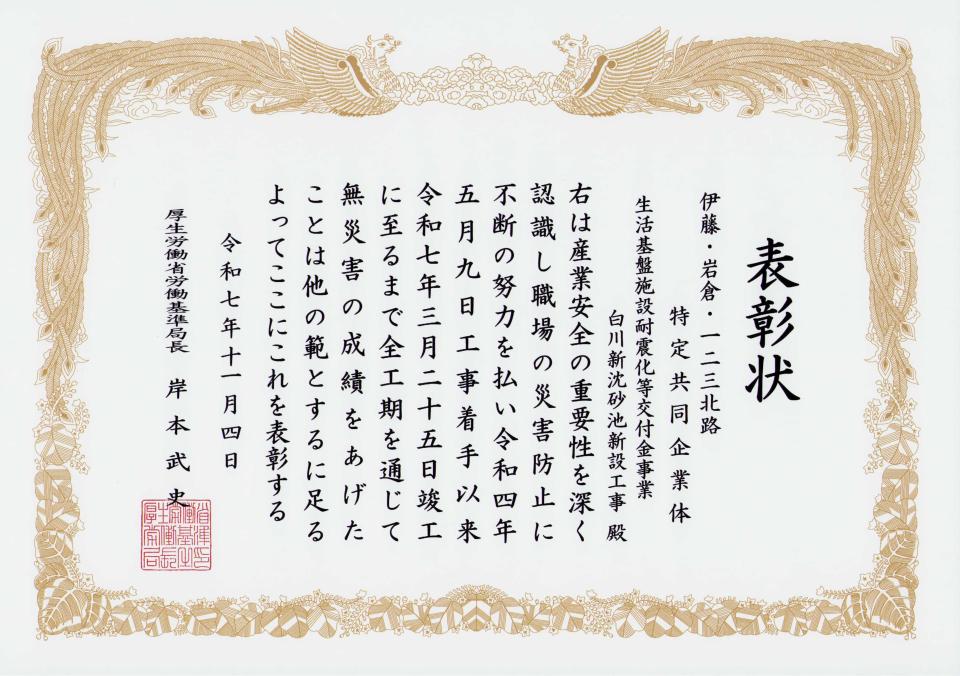 表彰状
伊藤・岩倉・一二三北路
特定共同企業体
生活基盤施設耐震化等交付金事業
白川新沈砂池新設工事 殿
右は産業安全の重要性を深く
認識し職場の災害防止に
不断の努力を払い令和四年
五月九日工事着手以来
令和七年三月二十五日竣工
に至るまで全工期を通じて
無災害の成績をあげた
ことは他の範とするに足る
よってここにこれを表彰する
令和七年十一月四日
厚生労働省労働基準局長 岸本武史